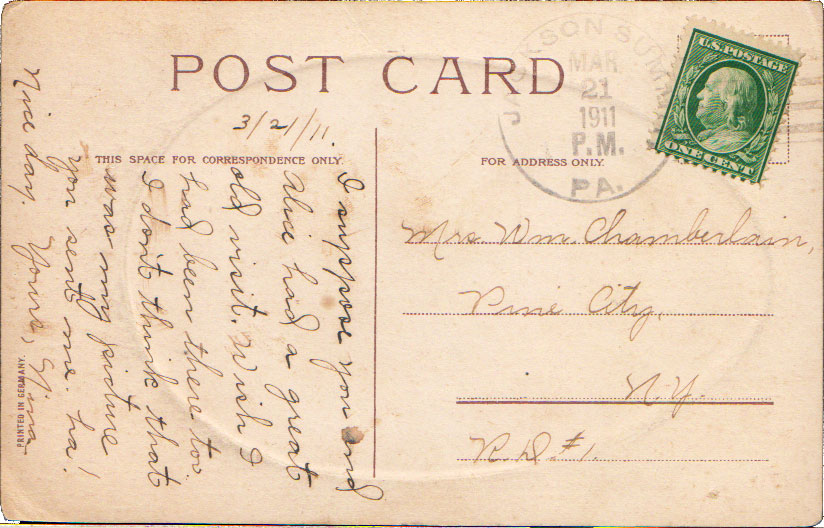 POST CARD
JACKSON SUMMIT
MAR
21
1911
P.M.
PA.
U.S. POSTAGE
ONE CENT
3/21/11.
THIS SPACE FOR CORRESPONDENCE ONLY.
FOR ADDRESS ONLY.
I suppose you and
Alice had a great
old visit. Wish I
had been there too.
I don't think that
was my picture
you sent me. ha!
Nice day. Yours,
Mrs. Wm. Chamberlain,
Pine City,
N.Y.
R.D. #1.
PRINTED IN GERMANY.